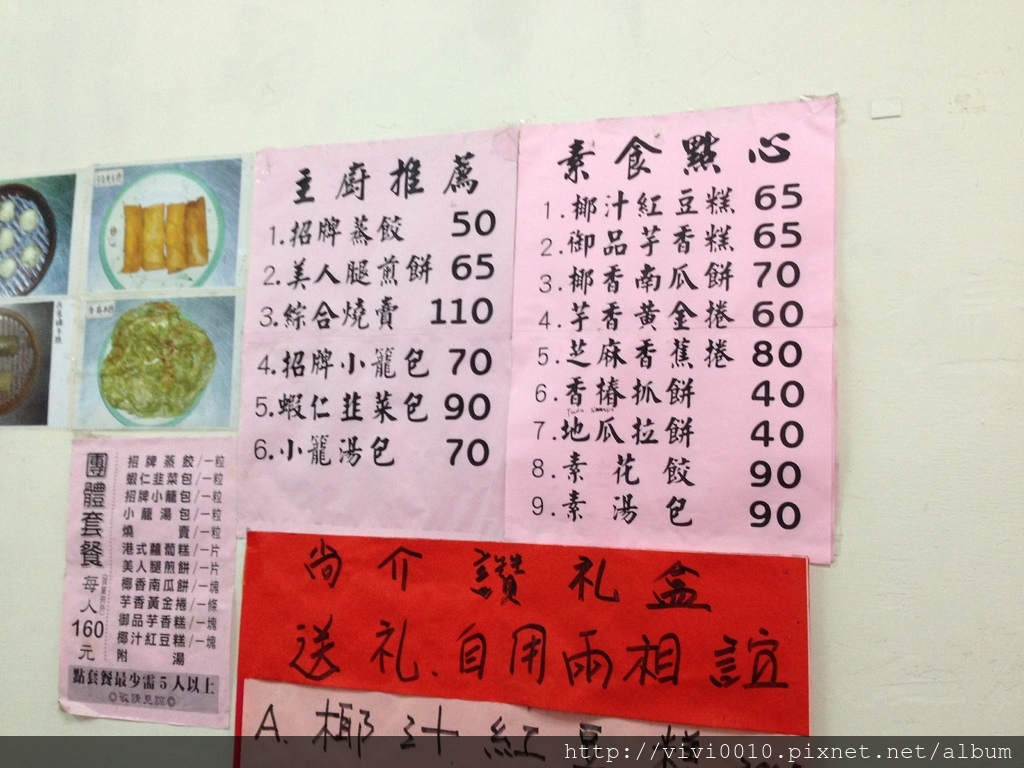 主廚推薦
1.招牌蒸餃 50
2.美人腿煎餅 65
3.綜合燒賣 110
4.招牌小籠包 70
5.蝦仁韮菜包 90
6.小籠湯包 70
素食點心
1.椰汁紅豆糕 65
2.御品芋香糕 65
3.椰香南瓜餅 70
4.芋香黃金捲 60
5.芝麻香蕉捲 80
6.香椿抓餅 40
7.地瓜拉餅 40
8.素花餃 90
9.素湯包 90
團體套餐
每人160元
招牌蒸餃/一粒
蝦仁韭菜包/一粒
招牌小籠包/一粒
小籠湯包/一粒
燒賣/一粒
港式蘿蔔糕/一片
美人腿煎餅/一片
椰香南瓜餅/一塊
芋香黃金捲/一條
御品芋香糕/一塊
椰汁紅豆糕/一塊
附湯
點套餐最少需5人以上
尚介讚礼盒
送礼.自用兩相誼
A.椰汁紅豆糕
http://vivi0010.pixnet.net/album